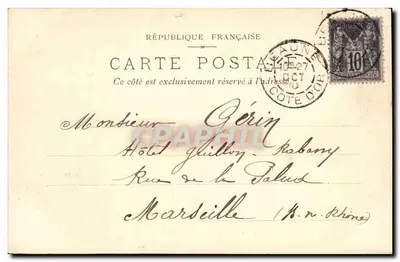 RÉPUBLIQUE FRANÇAISE
CARTE POSTALE
Ce côté est exclusivement réservé à l'adresse
BEAUNE
27
OCT
COTE D'OR
10
Monsieur Gérin
Hôtel Guillon-Rabany
Rue de la Palud
Marseille (B-n-Rhône)